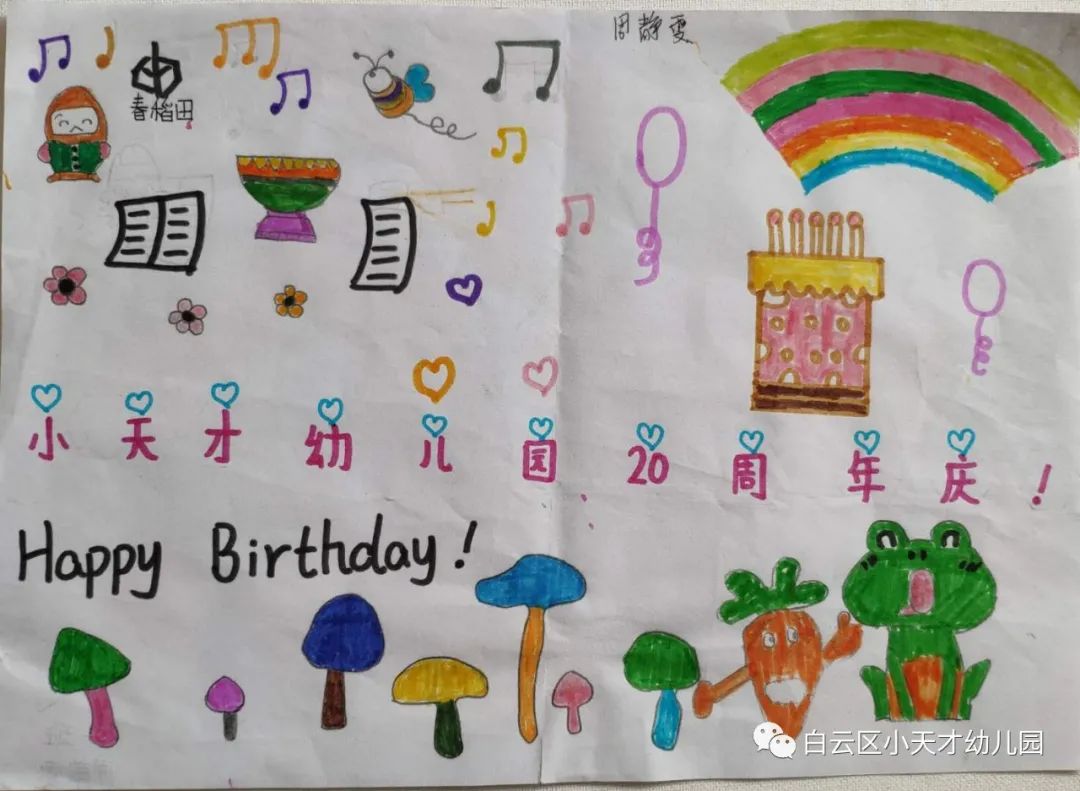 周静雯
春稻田
小天才幼儿园20周年庆！
Happy Birthday!
白云区小天才幼儿园